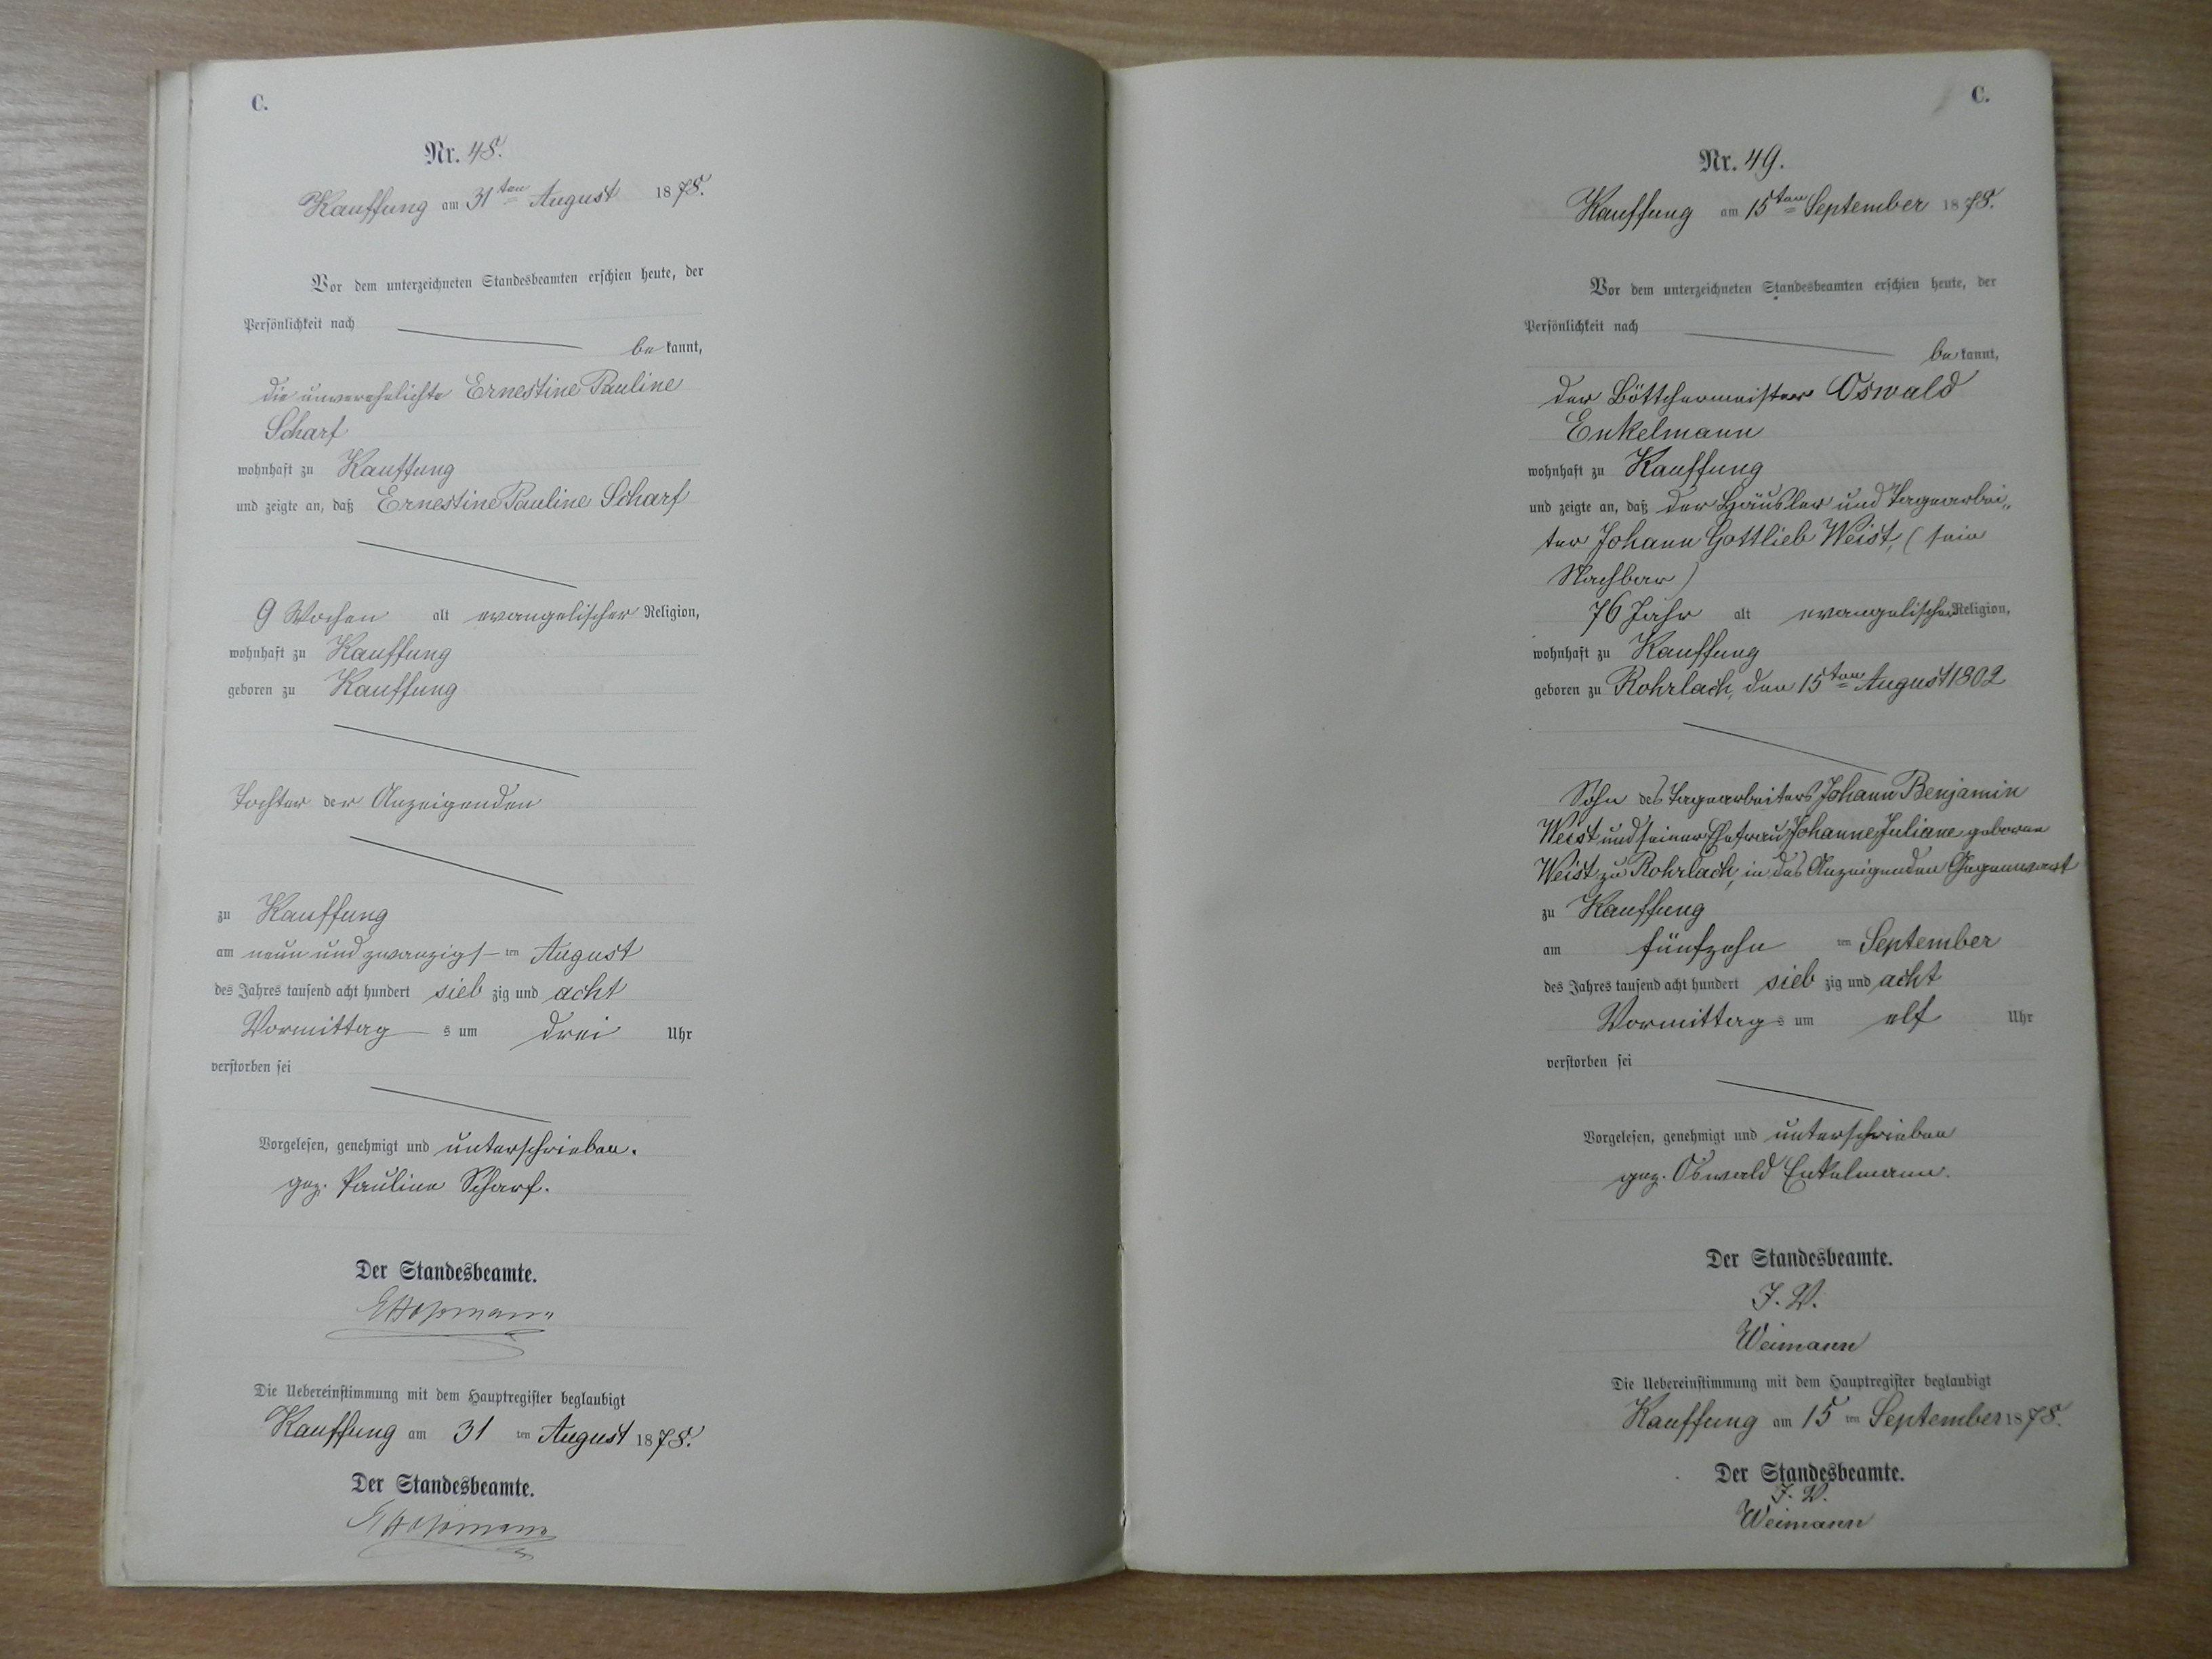 C.
Nr. 48.
Kauffung am 31ten August 1878.
Vor dem unterzeichneten Standesbeamten erschien heute, der
Persönlichkeit nach
be kannt,
die unverehelichte Ernestine Pauline
Scharf
wohnhaft zu Kauffung
und zeigte an, daß Ernestine Pauline Scharf
9 Wochen alt evangelischer Religion,
wohnhaft zu Kauffung
geboren zu Kauffung
Tochter der Anzeigenden
zu Kauffung
am neun und zwanzigs ten August
des Jahres tausend acht hundert sieb zig und acht
Vormittag s um drei Uhr
verstorben sei
Vorgelesen, genehmigt und unterschrieben.
gez. Pauline Scharf.
Der Standesbeamte.
Die Uebereinstimmung mit dem Hauptregister beglaubigt
Kauffung am 31 ten August 1878.
Der Standesbeamte.
C.
Nr. 49.
Kauffung am 15ten September 1878.
Vor dem unterzeichneten Standesbeamten erschien heute, der
Persönlichkeit nach
be kannt,
der Böttchermeister Oswald
Enkelmann
wohnhaft zu Kauffung
und zeigte an, daß der Häusler und Tagearbei„
ter Johann Gottlieb Weist, (sein
Nachbar)
76 Jahr alt evangelischer Religion,
wohnhaft zu Kauffung
geboren zu Rohrlach, den 15ten August 1802
Sohn des Tagearbeiters Johann Benjamin
Weist und seiner Ehefrau Johanne Juliane geborne
Weist zu Rohrlach, in des Anzeigenden Gegenwart
zu Kauffung
am fünfzehn ten September
des Jahres tausend acht hundert sieb zig und acht
Vormittag s um elf Uhr
verstorben sei
Vorgelesen, genehmigt und unterschrieben
gez. Oswald Enkelmann.
Der Standesbeamte.
J. V.
Weimann
Die Uebereinstimmung mit dem Hauptregister beglaubigt
Kauffung am 15 ten September 1878.
Der Standesbeamte.
J. V.
Weimann